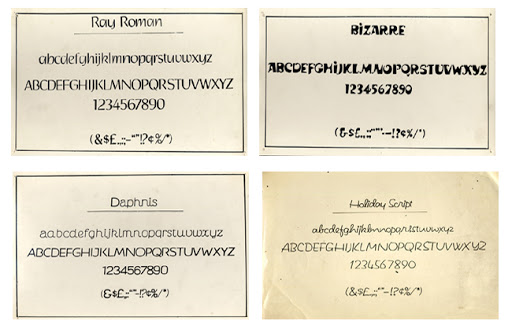 Ray Roman
abcdefghijklmnopqrstuvwxyz
ABCDEFGHIJKLMNOPQRSTUVWXYZ
1234567890
(&$£.,:;-“”!?¢%/*)
BiZARRE
ABCDEFGHiJKLMNOPQRSTUVWXYZ
1234567890
(&$£.,:;“”‘’-!?¢%/*)
Daphnis
aabcdefghijklmnopqrstuvwxyz
ABCDEFGHIJKLMNOPQRSTUVWXYZ
1234567890
(&$£.,:;“”-!?¢%/*)
Holiday Script
abcdefghijklmnopqrstuvwxyz
ABCDEFGHIJKLMNOPQRSTUVWXYZ
1234567890
(&$£.,:;“”-!?¢%/*)